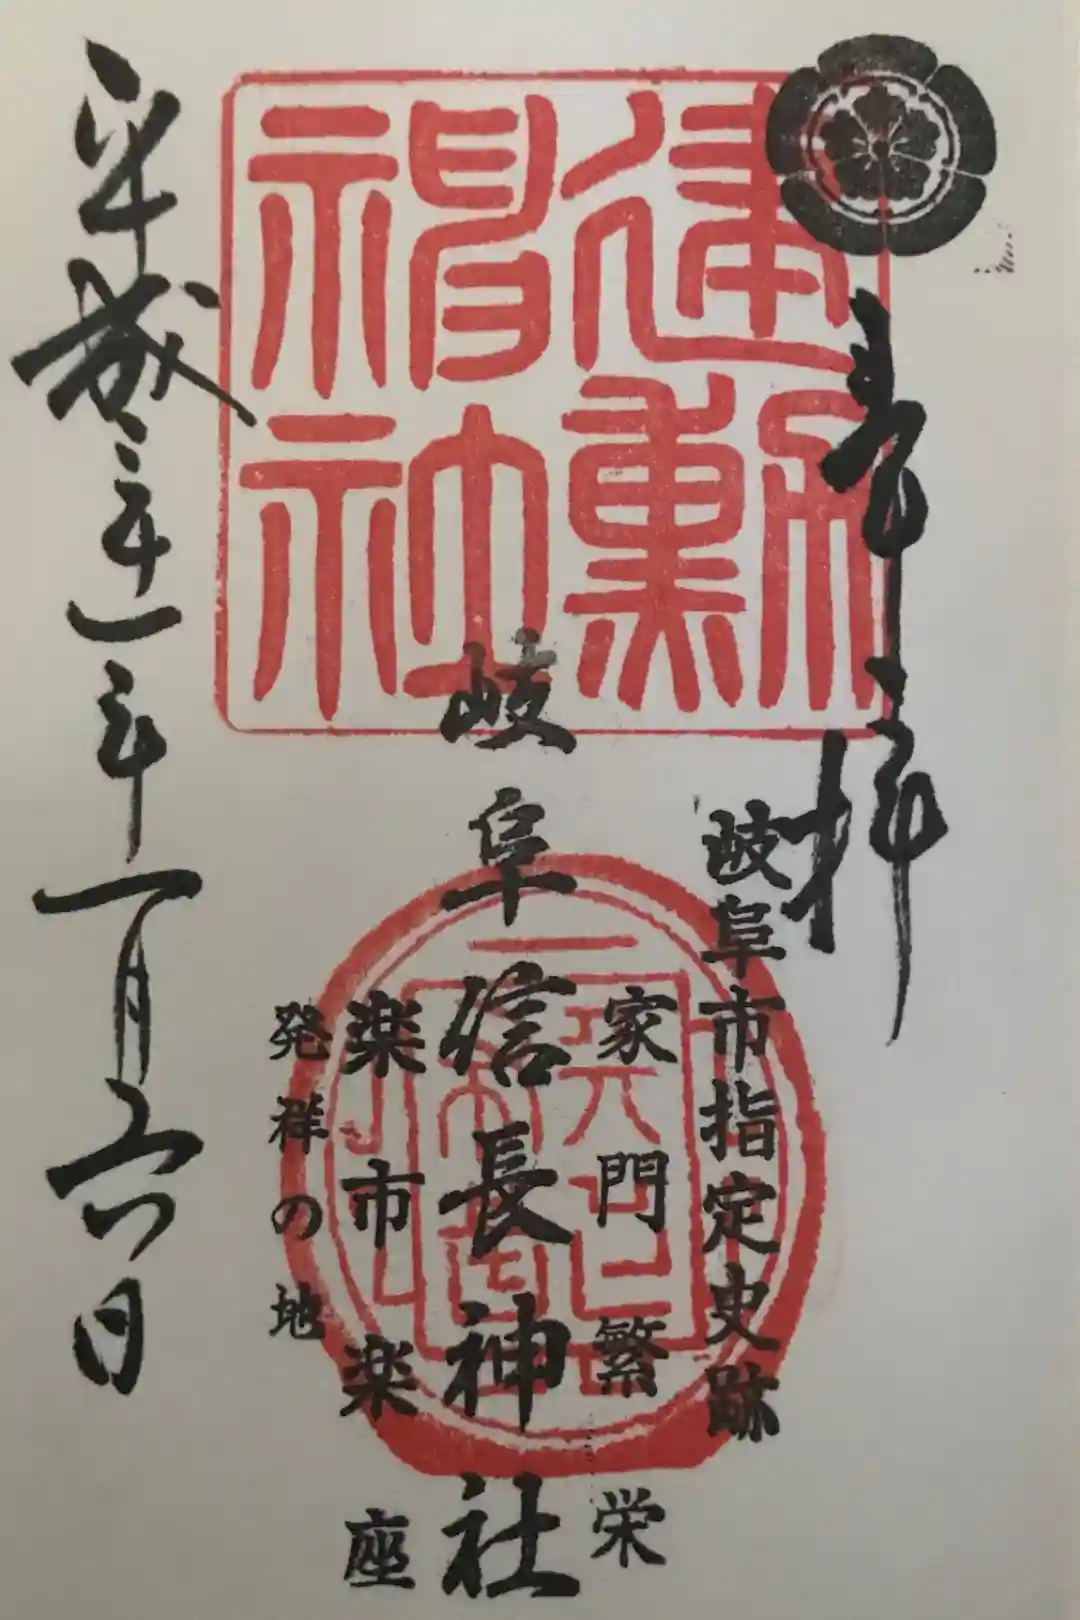 奉拝
岐阜市指定史跡
家門繁栄
岐阜信長神社
楽市楽座
発祥の地
平成三十一年一月六日
建勲神社